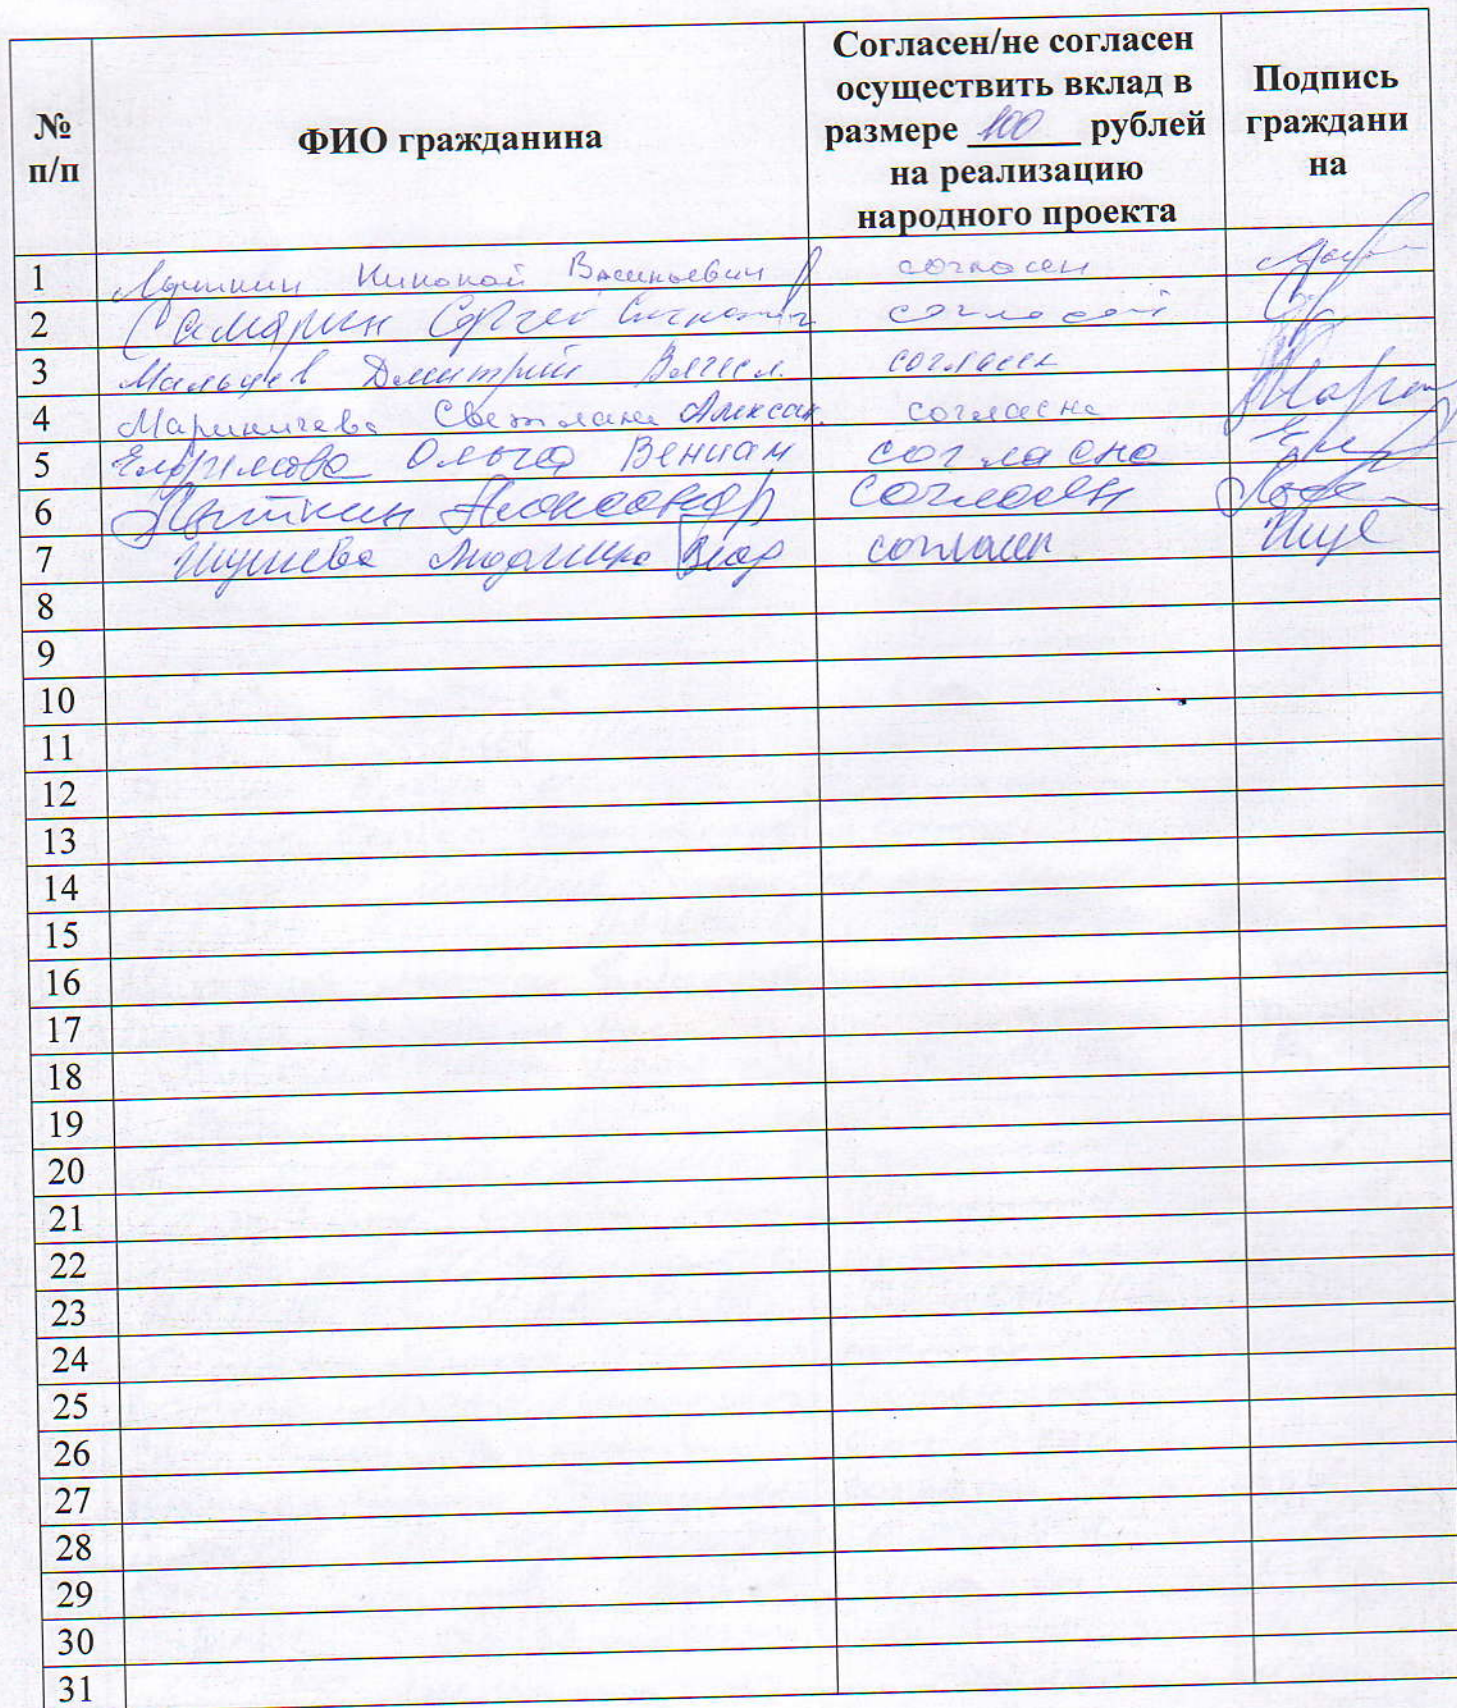 № п/п
ФИО гражданина
Согласен/не согласен осуществить вклад в размере 100 рублей на реализацию народного проекта
Подпись граждани на
1 Николай Васильевич согласен
2 Самарин Сергей согласен
3 Мальцев Дмитрий Вячесл. согласен
4 Мариничева Светлана Алексан. согласна
5 Елфимова Ольга Вениам согласна
6 Пыткин Александр согласен
7 Людмила Влад согласен
8
9
10
11
12
13
14
15
16
17
18
19
20
21
22
23
24
25
26
27
28
29
30
31